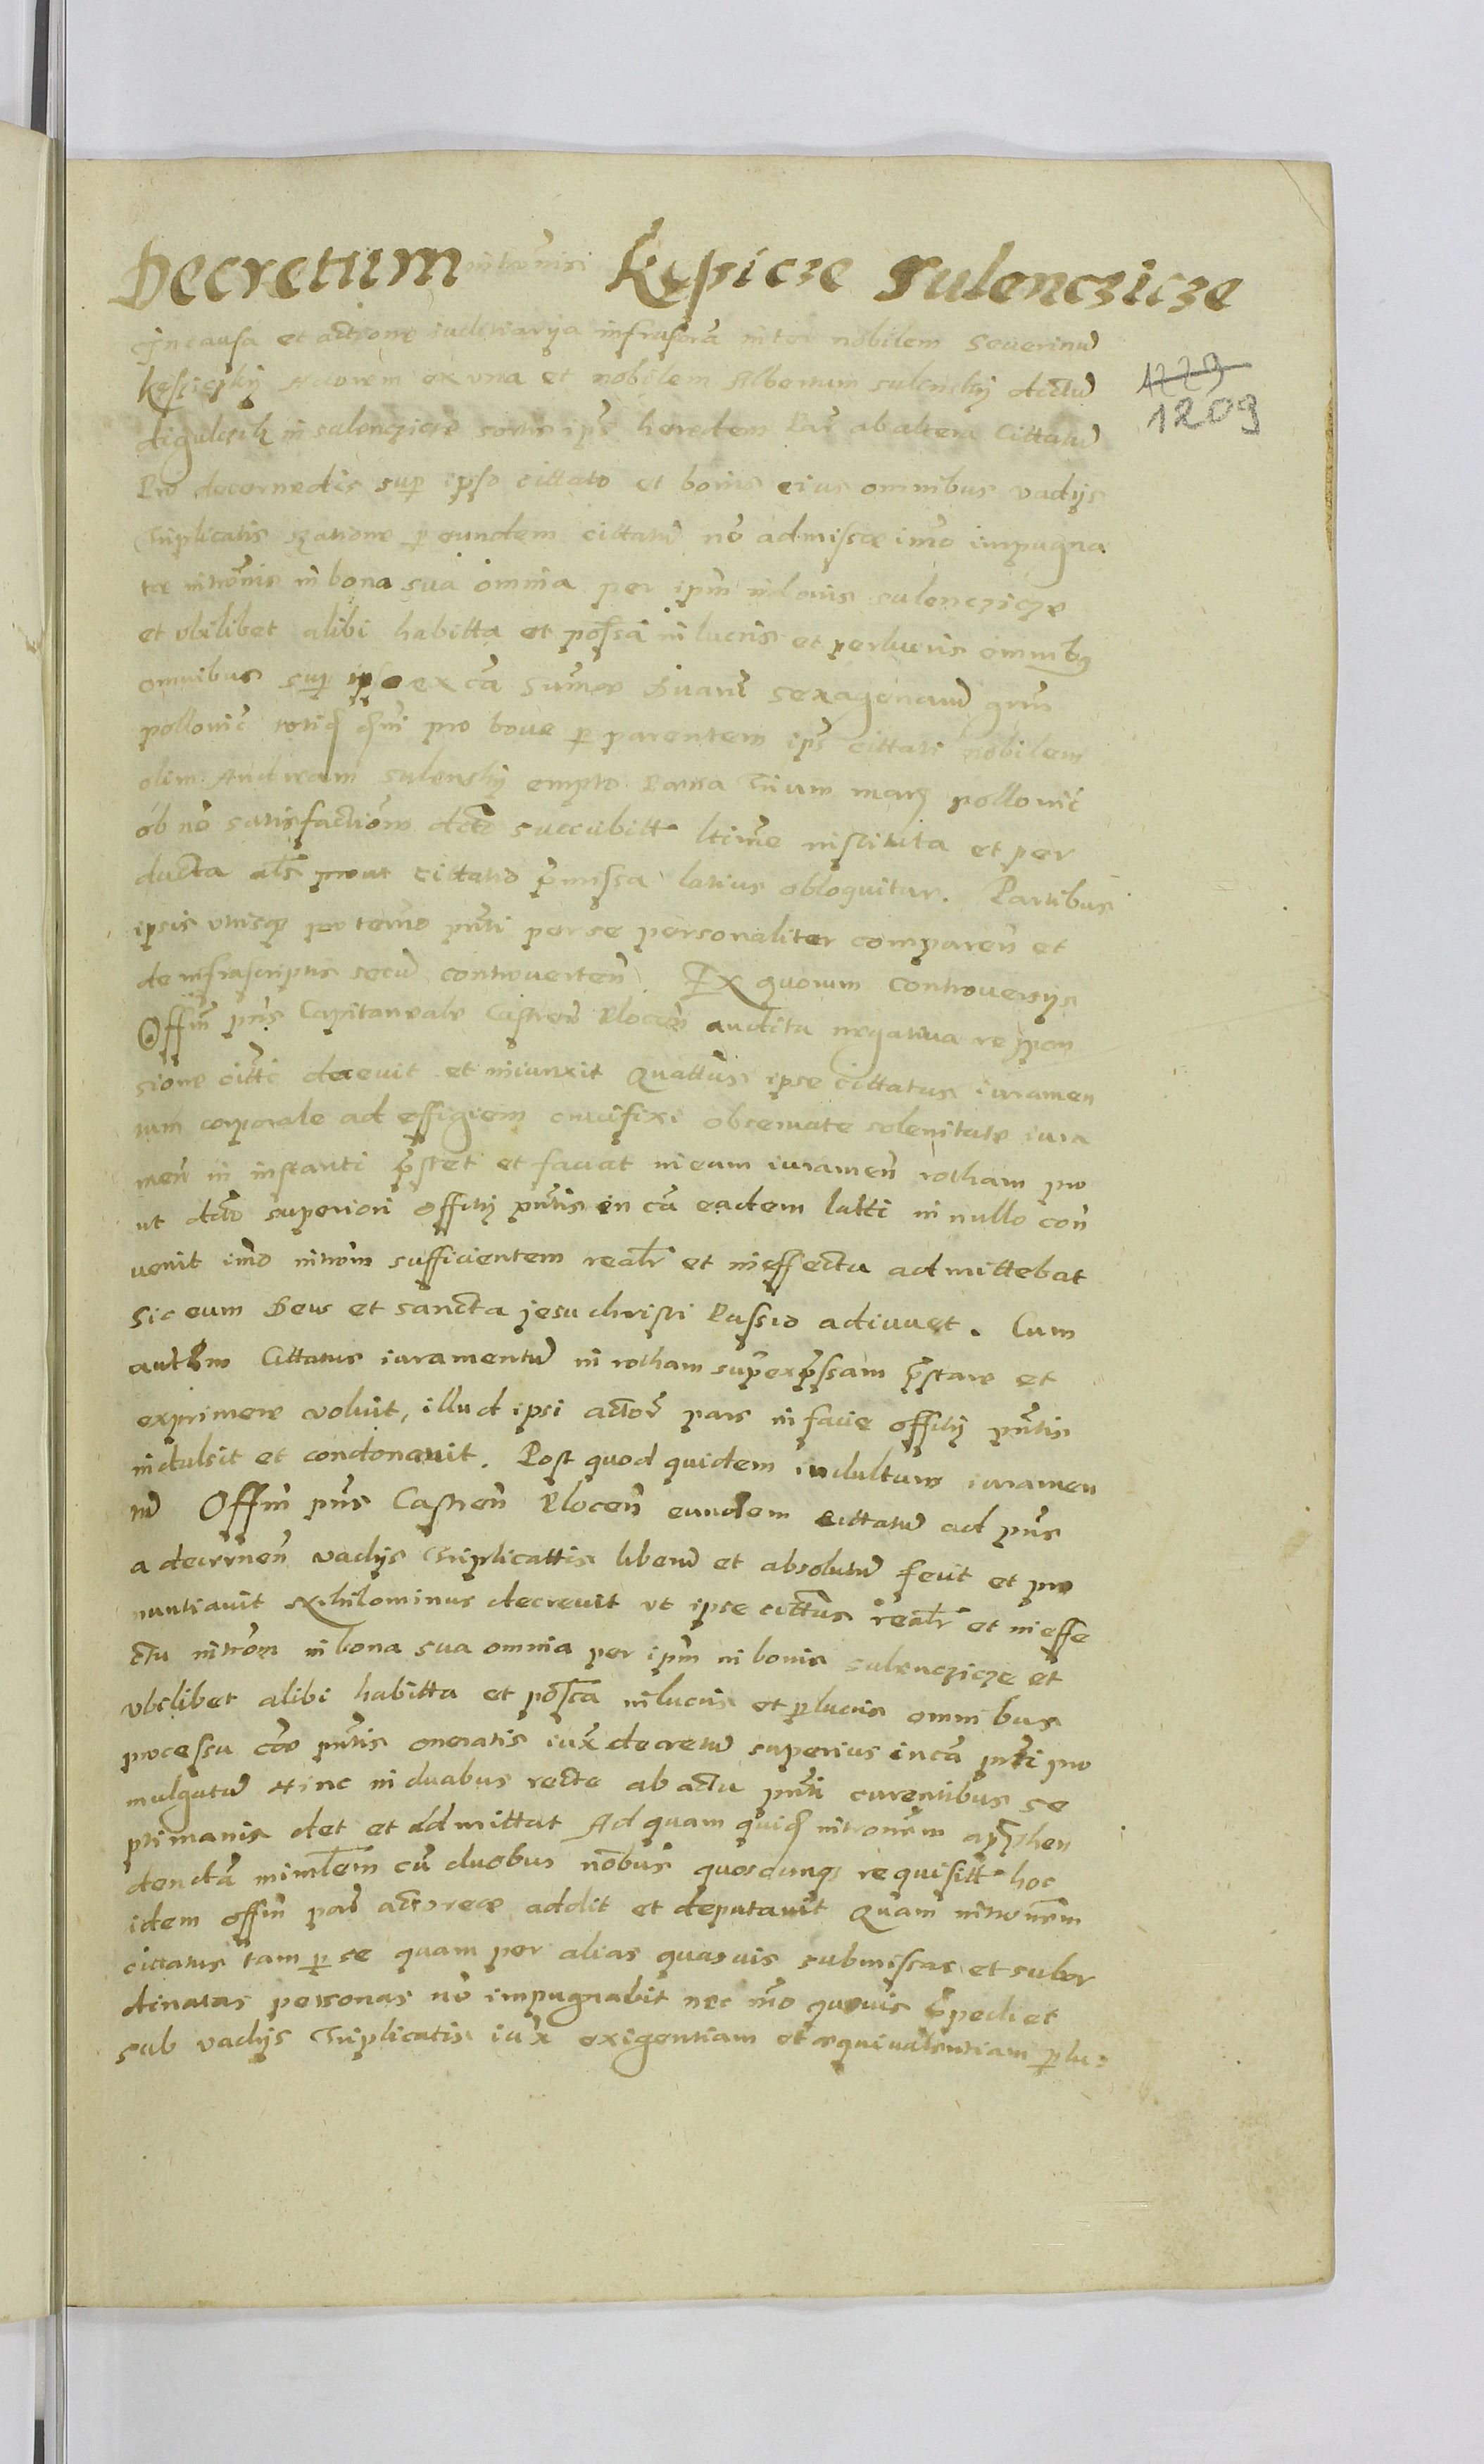 Decretum intromis Kępicze Sulenczicze
In causa et actione iudiciarya infrascra inter nobilem Severinu
Kępiczky Actorem ex una et nobilem Albertum sulensky dictu
in sulenczicze sortis ips heredem Par ab altera Cittatu
Pro decernedis sup ipso cittato et bonis eius omnibus vadys
triplicatis ratione p eundem cittatu no admissae imo impugna
tae intromis in bona sua omnia per ipm in bonis sulenczicze
et ubilibet alibi habitta et possa in lucris et perlucris omnibus
omnibus sup ipso ex ca sumae duaru sexagenaru grni
pollonic pro bove p parentem ips cittati nobilem
olim Andream sulensky empto Parta trium marc pollonic
ob no satisfactione dcto succubitt ltime instituta et per
ducta als prout cittatio pmissa latius obloquitar. Partibus
ipsis utrisque pro termo pnti per se personaliter comparen et
de infrascriptis secu controverten. Ex quorum controversys
Offm pns Capitaneale Castren Plocen audita negativa respon
sione citti decevit et iniunxit Quattus ipse cittatus iuramen
tum corporale ad effigiem crucifixi observate solenitate iura
men in instanti pstet et faciat in eum iuramen rotham pro
ut dcto superiori offity pntis in ca eadem latti in nullo con
venit imo introm sufficientem realr et in effectu admittebat
Sic eum Deus et sancta jesu christi Passio adiuvet. Cum
autem Cittatus iuramentu in rotham supexpssam pstare et
exprimere voluit, illud ipsi actor pars in facie offity pntis
indulsit et condonavit. Post quod quidem indultum iuramen
tu Offm pns Castren Plocen eundem cittatu ad pns
a decernen vadys triplicattis liberu et absolutu fecit et pro
nuntiavit Nihilominus decrevit ut ipse cittus realr et in effe
ctu introm in bona sua omnia per ipm in bonis sulenczicze et
ubilibet alibi habitta et possa in lucris et plucris omnibus
processu coro pntis oneratis iux decretu superius in ca pnti pro
mulgatu Hinc in duabus recte ab actu pnti curentibus se
ptimanis det et admittat Ad quam quid intronem apphen
denda mimlem cu duobus nobus quoscunq requisitt hoc
idem offm par actoreae addit et deputavit Quam intronem
cittatus tam p se quam per alias quasvis submissas et subor
dinatas personas no impugnabit nec mo quovis ipediet
sub vadys triplicatis iux exigentiam et aequivalentiam plu-
1229
1209